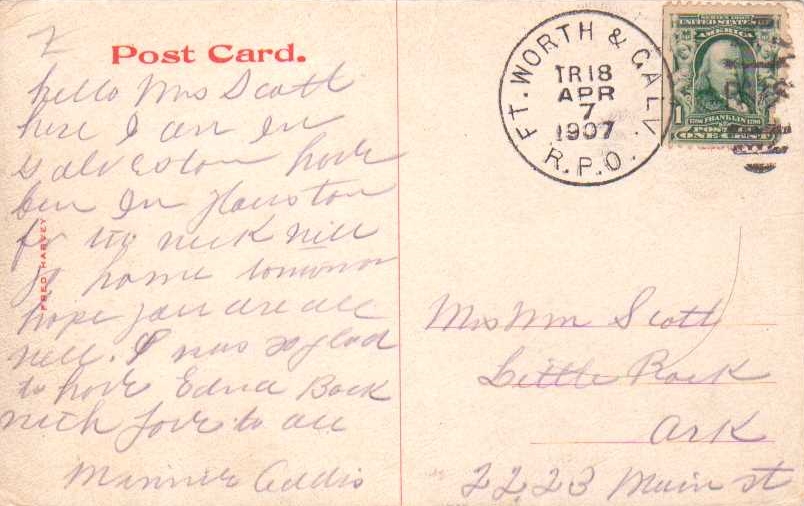 Post Card.
hello Mrs Scott
here I am In
Galveston have
ben In Houston
for week will
go home tomorrow
hope you are all
well. I was so glad
to have Edna Back
with Love to all
Minnie Addis
FRED HARVEY
FT. WORTH & GALV.
TR18
APR
7
1907
R.P.O.
SERIES 1902
UNITED STATES
AMERICA
1
FRANKLIN
POSTAGE
ONE CENT
Mrs Wm Scott
Little Rock
Ark
2223 Main st